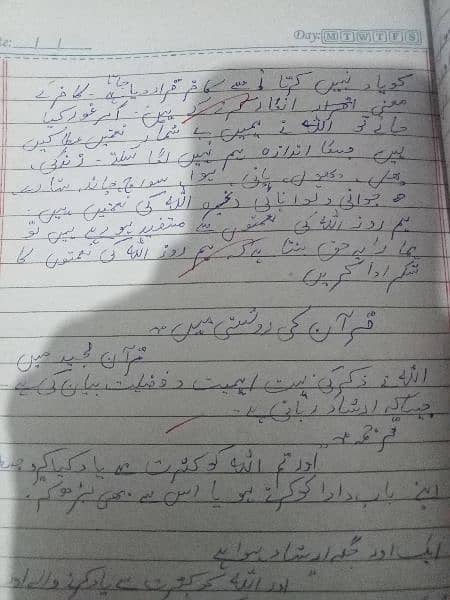 Day: M T W T F S
کو یاد نہیں کرتا اسے کافر قرار دیا جاتا ہے۔ کافر کے
معنی انکار کرنے کے ہیں۔ اگر غور کیا
جائے تو اللہ نے ہمیں بے شمار نعمتیں عطا کیں
ہیں جسکا اندازہ ہم نہیں لگا سکتے۔ زندگی،
پھل، پھول، پانی، ہوا، سورج چاند ستارے
جوانی و توانائی وغیرہ اللہ کی نعمتیں ہیں
ہم روز اللہ کی نعمتوں سے مستفید ہو رہے ہیں تو
ہمارا یہ حق بنتا ہے کہ ہم روز اللہ کی نعمتوں کا
شکر ادا کریں
قرآن کی روشنی میں
قرآن مجید میں
اللہ نے ذکر کی بہت اہمیت و فضیلت بیان کی ہے۔
جیسا کہ ارشاد ربانی ہے۔
ترجمہ
اور تم اللہ کو کثرت سے یاد کیا کرو
اپنے باپ دادا کو کرتے ہو یا اس سے بھی بڑھ کر
ایک اور جگہ ارشاد ہوا ہے
اور اللہ کو کثرت سے یاد کرنے والے اور